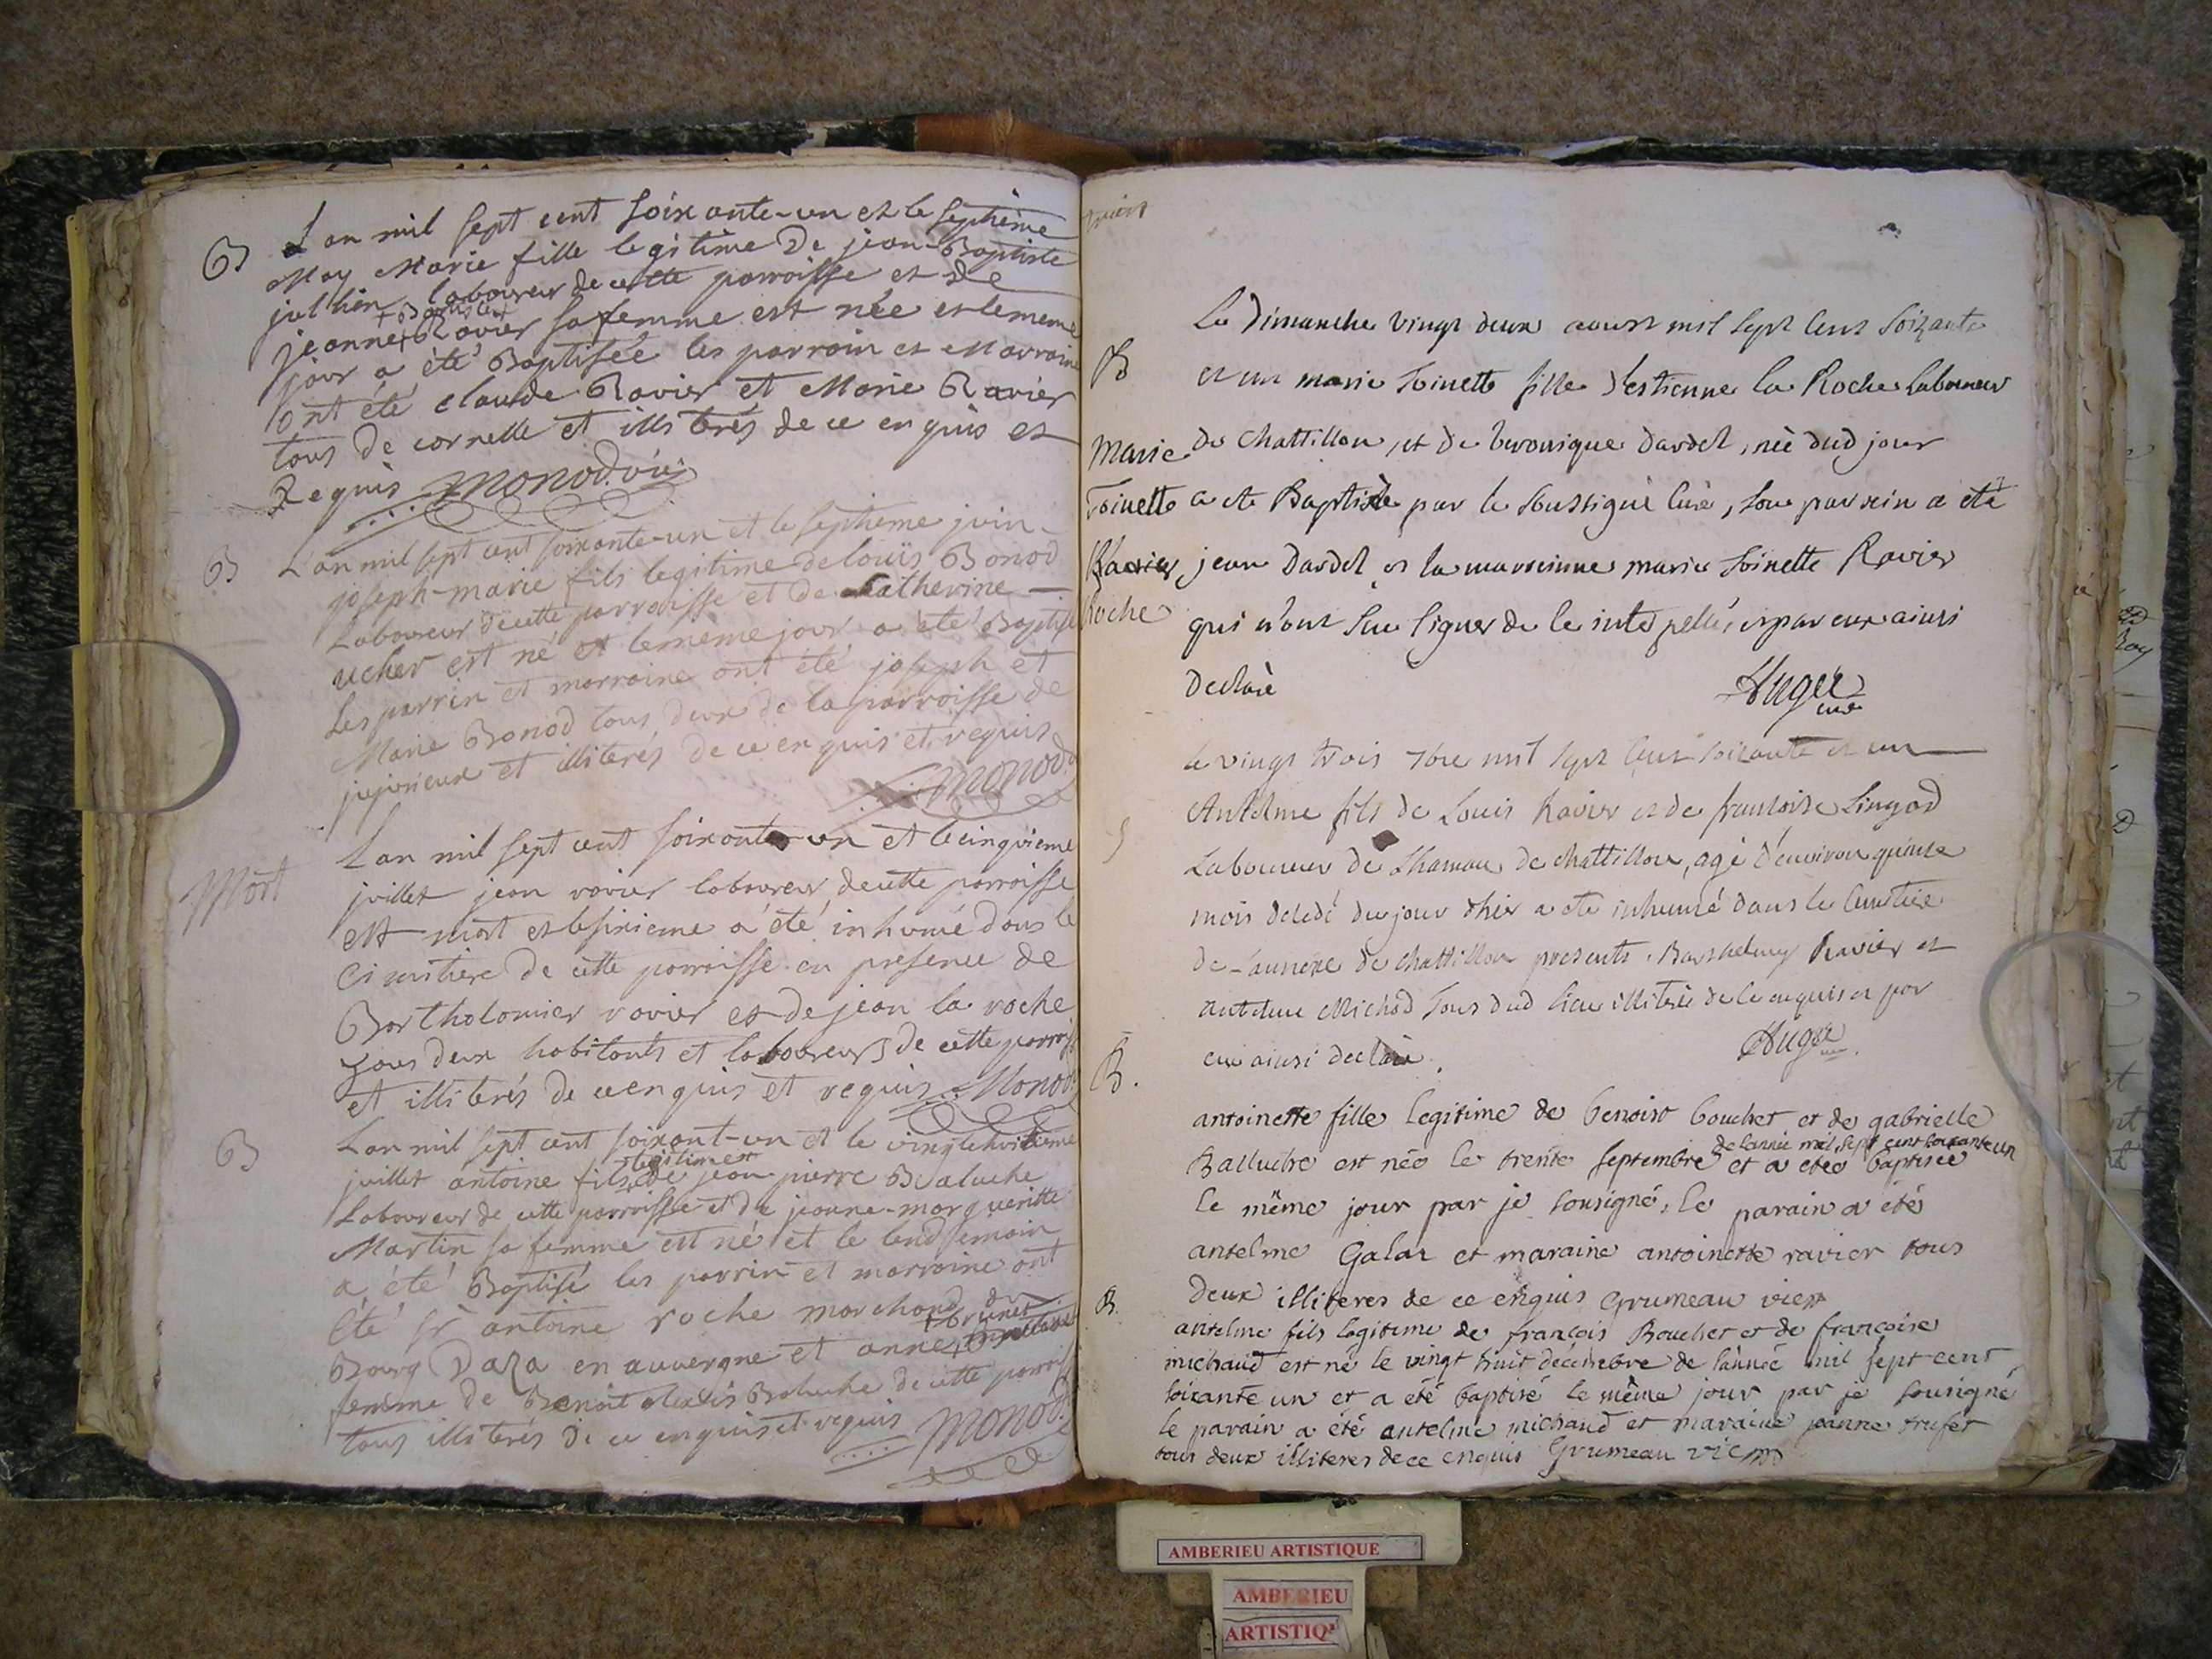 B
L'an mil sept cent soixante-un et le septième
May Marie fille legitime de jean-Baptiste
jullien laboureur de cette parroisse et de
+ Baptiste +
jeanne + Ravier sa femme est née et le meme
jour a été Baptisée les parrain et Marraine
ont été claude Ravier et Marie Ravier
tous de cornelle et illiterés de ce enquis et
Requis Monod vic
B
L'an mil sept cent soixante-un et le septieme juin
joseph-marie fils legitime de louïs Bonod
Laboureur de cette parroisse et de Catherine
ucher est né et le même jour a été Baptisé
Les parrin et marraine ont été joseph et
Marie Bonod tous deux de la parroisse de
jujurieux et illiterés de ce enquis et requis
Monod
Mort
L'an mil sept cent soixante-un et le cinquieme
juillet jean ravier laboureur de cette parroisse
est mort et le sixieme a été inhumé dans le
Cimitiere de cette parroisse en presence de
Bartholomier ravier et de jean la roche
tous deux habitants et laboureurs de cette parroiss
et illiterés de ce enquis et requis Monod
B
L'an mil sept cent soixant-un et le vingt huitieme
legitime +
juillet antoine fils + de jean pierre Baluche
Laboureur de cette parroisse et de jeanne-margueritte
Martin sa femme est né et le lendemain
a été Baptisé les parrin et marraine ont
été sr antoine roche marchand du
+ brunet
Bourg Daza en auvergne et anne +
femme de Benoit alexis Baluche de cette parroiss
tous illiterés de ce enquis et requis Monod
Le Dimanche vingt deux aoust mil sept cent soixante
B
et un marie Toinette fille d'estienne la Roche laboureur
Marie
de Chattillon, et de veronique dardel, née dud jour
Toinette
a ete Baptisée par le soussigné curé, son parrein a été
Roche
jean Dardel et la marreinne marie Toinette Ravier
qui n'ont sue signer de ce interpellé, et par eux ainsi
Declaré
Auger
curé
le vingt trois 7bre mil sept cent soixante et un
S
Antelme fils de Louis Ravier et de francoise Lingod
Laboureur de Lhamau de chattillon, agé d'environ quinze
mois decedé du jour d'hier a ete inhumé dans le cimetiere
de Lannexe de chattillon presents Barthelmy Ravier et
antelme Michod tous dud lieu illiteré de ce enquis et par
eux ainsi declaré.
Auger
B.
antoinette fille legitime de benoist bouchet et de gabrielle
de lannée mil sept cent soixante un
Balluche est née le trente septembre et a etée baptisée
le même jour par je sousigné, le parain a étés
antelme Galar et maraine antoinette ravier tous
deux illiteres de ce enquis Grumeau vic
B.
antelme fils legitime de françois Bouchet et de françoise
michaud est né le vingt huit décembre de lannée mil sept cent
soixante un et a été baptisé le même jour par je sousigné
le parain a été antelme michaud et maraine jeanne trufet
tous deux illiteres de ce enquis Grumeau vic
AMBERIEU ARTISTIQUE
AMBERIEU
ARTISTIQ